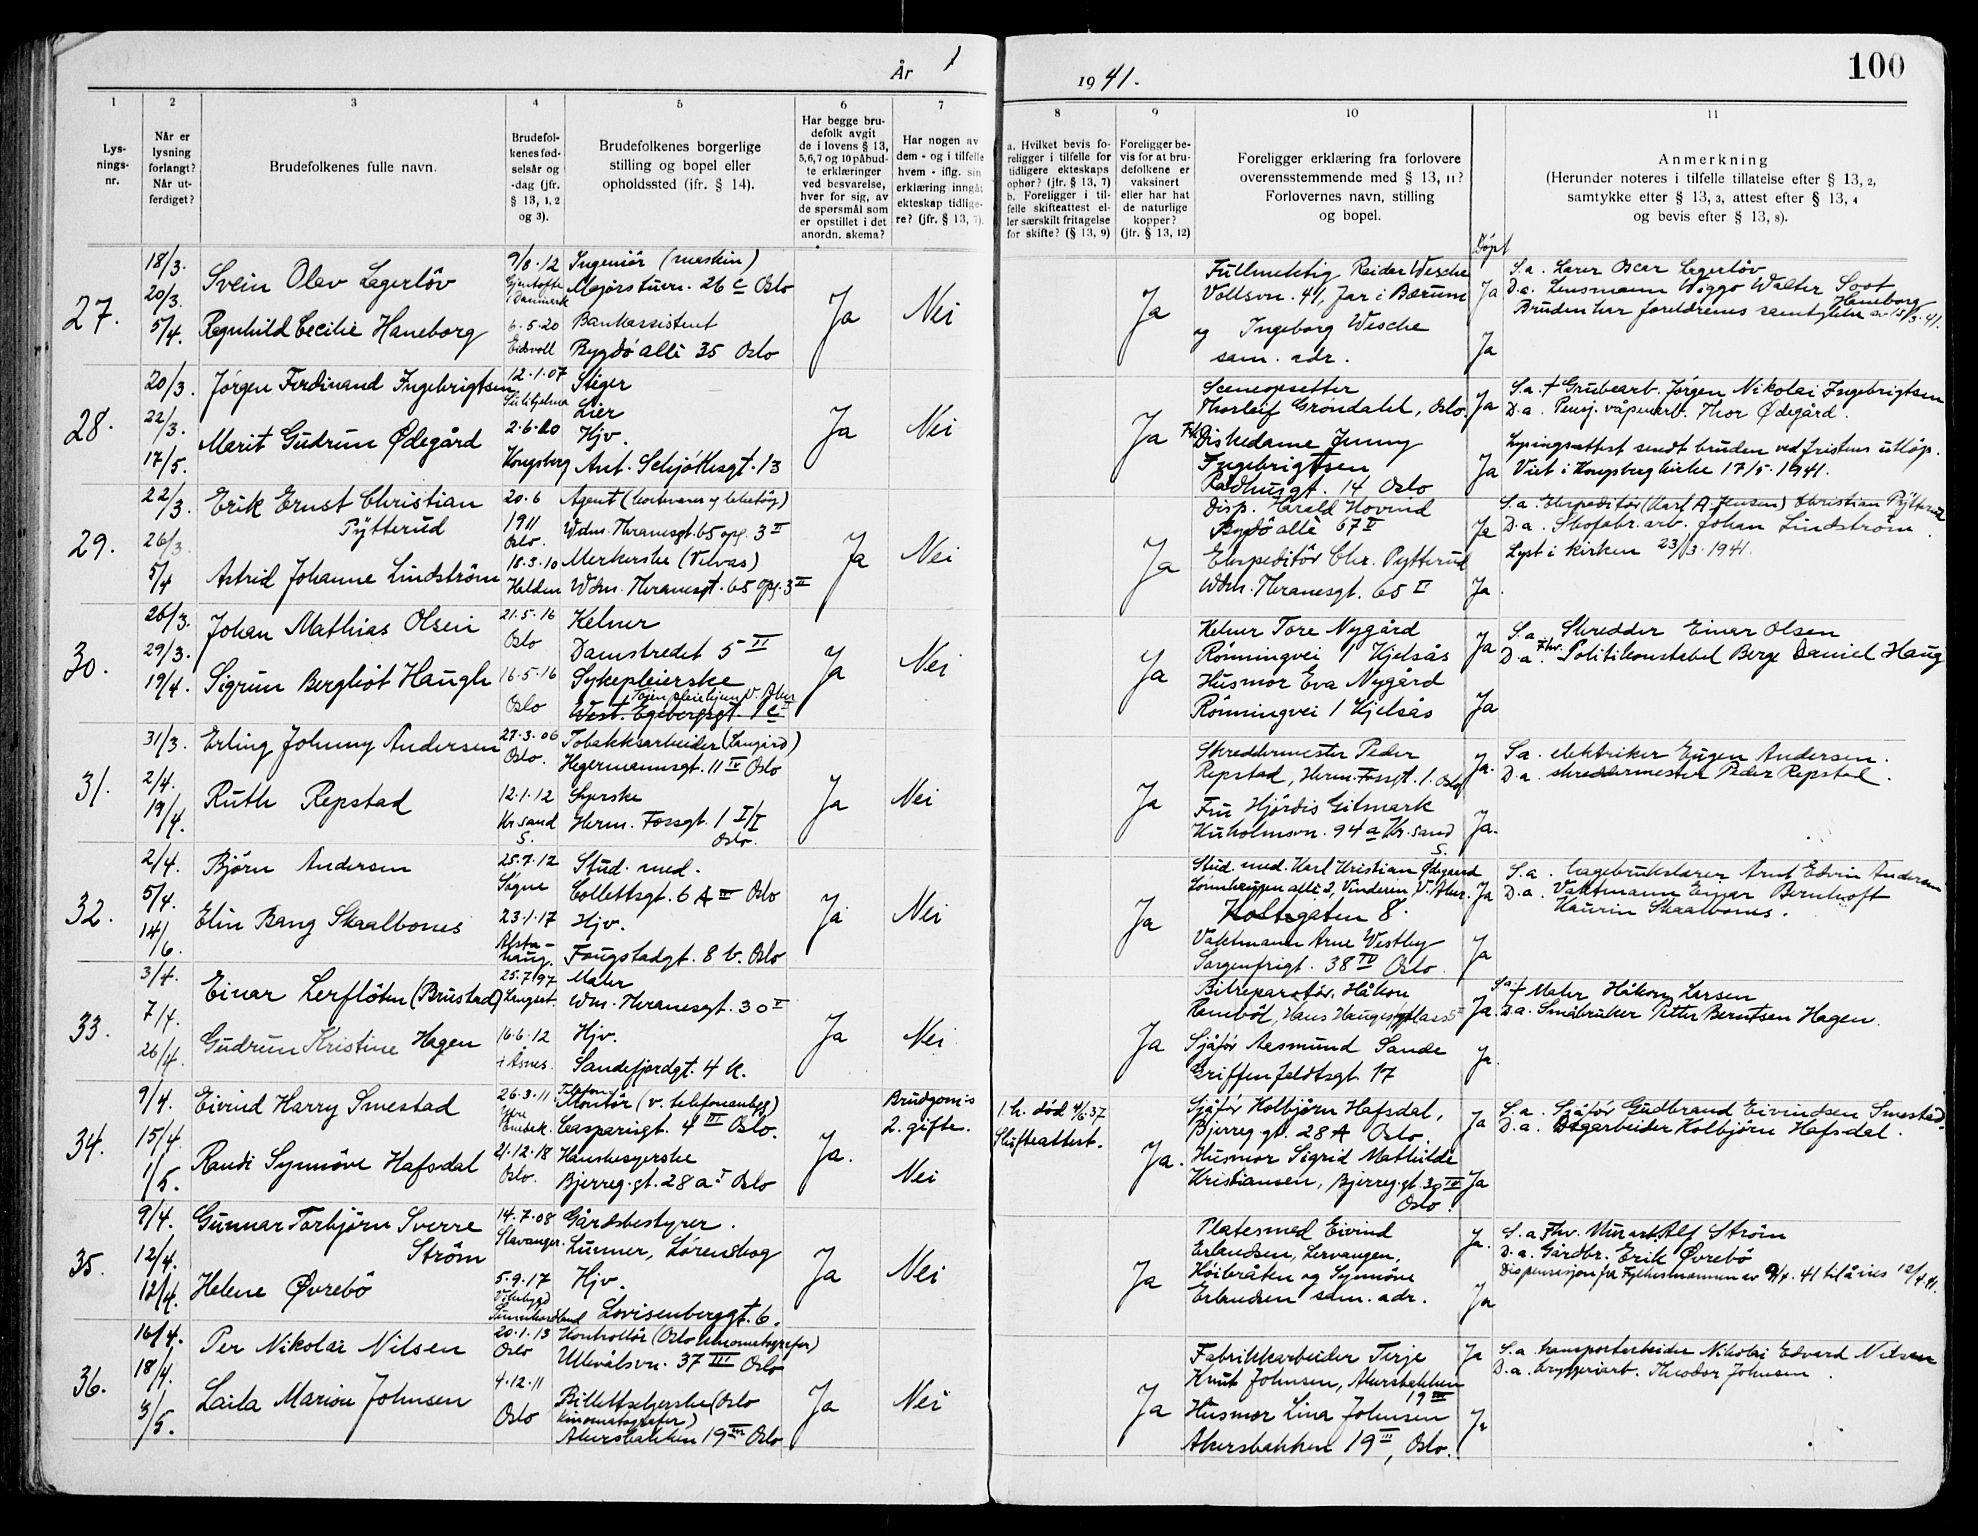 År 1
1941.
100
1
2
3
4
5
6
7
8
9
10
11
Lys-
nings-
nr.
Når er
lysning
forlangt?
Når ut-
ferdiget?
Brudefolkenes fulle navn.
Brudefol-
kenes fød-
selsår og
-dag (jfr.
§ 13, 1, 2
og 3).
Brudefolkenes borgerlige
stilling og bopel eller
opholdssted (ifr. § 14).
Har begge bru-
defolk avgit
de i lovens § 13,
5,6,7 og 10 påbud-
te erklæringer
ved besvarelse,
hver for sig, av
de spørsmål som
er opstillet i det
anordn. skema?
Har nogen av
dem - og i tilfelle
hvem - iflg. sin
erklæring inngåt
ekteskap tidlige-
re? (jfr. § 13, 7).
a. Hvilket bevis fo-
religger i tilfelle for
tidligere ekteskaps
ophør? (jfr. § 13, 7)
b. Foreligger i til-
felle skifteattest el-
ler særskilt fritagelse
for skifte? (§ 13, 9)
Foreligger be-
vis for at bru-
defolkene er
vaksinert
eller har hat
de naturlige
kopper?
(jfr. § 13, 12)
Foreligger erklæring fra forlovere
overensstemmende med § 13, 11?
Forlovernes navn, stilling
og bopel.
Døpt
Anmerkning
(Herunder noteres i tilfelle tillatelse efter § 13, 2,
samtykke efter § 13, 3, attest efter § 13, 4
og bevis efter § 13, 8).
27.
18/3.
20/3.
5/4.
Svein Olav Lagerløv
Ragnhild Cecilie Haneborg
9/8.12
Gjentofte
Danmark
6.5.20
Eidsvoll
Ingeniør (maskin)
Majorstuvn. 26 c Oslo
Bankassistent
Bygdø allé 35 Oslo
Ja
Nei
Ja
Fullmektig Reidar Wesche
Vollsvn. 41, Jar i Bærum
og Ingeborg Wesche
sam. adr.
Ja
Ja
S.a. Lærer Oscar Lagerløv
D.a. Lensmann Viggo Walter Soot
Haneborg
Bruden har foreldrenes samtykke av 15/3.41.
28.
20/3.
22/3.
17/5.
Jørgen Ferdinand Ingebrigtsen
Marit Gudrun Ødegård
12.1.07
Sulitjelma
2.6.20
Kongsberg
Stiger
Lier
Hjv.
Ant. Schjøthsgt. 13
Ja
Nei
Ja
Sceneopsetter
Thorleif Grøndahl, Oslo.
Diskedame Jenny
Ingebrigtsen
Rådhusgt. 14 Oslo
Ja
Ja
S.a. † Grubearb. Jørgen Nikolai Ingebrigtsen
D.a. Pensj. våpenarb. Thor Ødegård.
Lysningsattest sendt bruden ved fristens utløp.
Viet i Kongsberg kirke 17/5-1941.
29.
22/3.
26/3
5/4
Erik Ernst Christian
Pytterud
Astrid Johanne Lindstrøm
20.6
1911
Oslo.
18.3.10
Halden
Wdm. Thranesgt. 65 opg. 3 II
Merkerske (Velvas)
Wdm. Thranesgt. 65 opg. 3 II
Ja
Nei
Ja
Disp. Harald Hovind
Bygdø allé 67 II
Ekspeditør Chr. Pytterud
Wdm. Thranesgt. 65 II
Ja
Ja.
S.a. Ekspeditør (Karl A. Jensen) Christian Pytterud
D.a. Skofabr.arb. Johan Lindstrøm.
Lyst i kirken 23/3.1941.
30.
26/3.
29/3.
19/4.
Johan Mathias Olsen
Sigrun Bergliot Haugh
21.5.16
Oslo
16.5.16
Oslo
Kelner
Damstredet 5 II
Sykepleierske
Tøien pleiehjem V. Aker
West. Egebergsgt. 1 c II
Ja
Nei
Ja
Kelner Tore Nygård
Rønningvei 1 Kjelsås
Husmor Eva Nygård
Rønningvei 1 Kjelsås
Ja
Ja
S.a. Skredder Einar Olsen
D.a. Fhv. Politikonstabel Berge Daniel Haug
31.
31/3.
2/4.
19/4.
Erling Johnny Andersen
Ruth Repstad
27.3.06
Oslo.
12.1.12
Kr.sand
S.
Tobakksarbeider (Langård)
Hegermannsgt. 11 IV Oslo
Syerske
Herm. Fossgt. 1 I/I
Oslo.
Ja
Nei
Ja
Skreddermester Peder
Repstad, Herm. Fossgt. 1. Oslo
Fru Hjørdis Gitmark
Kuholmsvn. 94 a Kr.sand
S.
Ja.
Ja.
S.a. elektriker Eugen Andersen.
D.a. skreddermester Peder Repstad.
32.
2/4.
5/4.
14/6.
Bjørn Andersen
Elin Bang Skaalbones
25.7.12
Søgne
23.1.17
Alsta-
haug.
Stud. med.
Collettsgt. 6 A III Oslo
Hjv.
Fougstadgt. 8 b. Oslo
Ja
Nei
Ja
Stud. med. Karl Kristian Ødegaard
Holtegaten 8.
Vaktmann Arne Westby
Sorgenfrigt. 38 IV Oslo.
Ja
Ja
S.a. Hagebrukslærer Arnt Edvin Andersen
D.a. Vaktmann Einar Bernhoft
Kaurin Skaalbones.
33.
3/4.
7/4.
26/4.
Einar Lerfløten (Brustad)
Gudrun Kristine Hagen
25.7.97
Langset.
16.6.12
i Åsnes.
Maler
Wm. Thranesgt. 30 V
Hjv.
Sandefjordgt. 4 k.
Ja
Nei
Ja
Bilreparatør, Håkon
Rambøl, Hans Haugesplass 5 II
Sjåfør Aasmund Sande
Griffenfeldtsgt. 17
Ja.
Ja.
S.a. † Maler Håkon Larsen
D.a. Småbruker Peter Berntsen Hagen.
34.
9/4.
15/4.
1/5.
Eivind Harry Smestad
Randi Synnøve Hafsdal
26.3.11
Øvre
Enebak.
21.12.18
Oslo.
Telefon
Montør (v. telefonanlegg)
Casparisgt. 4 III Oslo.
Hanskesyerske
Bjerreg.gt. 28 a I Oslo
Ja.
Brudgom's
2. gifte.
Nei
1. h. død 4/6.37
Skifteattest.
Ja.
Sjåfør Kolbjørn Hafsdal,
Bjerreg.gt. 28A Oslo
Husmor Sigrid Mathilde
Kristiansen, Bjerreg.gt. 30 IV
Oslo.
Ja
Ja
S.a. Sjåfør Gudbrand Eivindsen Smestad.
D.a. Dagarbeider Kolbjørn Hafsdal.
35.
9/4.
12/4.
12/4.
Gunnar Torbjørn Sverre
Strøm
Helene Øvrebø
14.7.08
Stavanger.
5.9.17
Vikebygd
Sunnhordland
Gårdsbestyrer.
Lunner, Lørenskog
Hjv.
Lovisenberggt. 6.
Ja
Nei
Ja
Platesmed Eivind
Erlandsen, Lervangen,
Høibråten og Synnøve
Erlandsen sam. adr.
Ja.
Ja
S.a. Fhv. Murart. Alf Strøm
D.a. Gårdbr. Erik Øvrebø
Dispensasjon fra Fylkesmannen av 9/4.41 til å vies 12/4.41.
36.
16/4.
18/4.
3/5.
Per Nikolai Nilsen
Laila Marion Johnsen
20.1.13
Oslo
4.12.11
Oslo
Kontrollør (Oslo kinematografer)
Ullevålsvn. 37 III Oslo
Billettselgerske (Oslo
kinematografer)
Akersbakken 19 III Oslo
Ja
Nei
Ja
Fabrikkarbeider Terje
Knut Johnsen, Akersbakken
19 III
Husmor Lina Johnsen
Akersbakken 19 III, Oslo.
Ja
Ja
S.a. transportarbeider Nikolai Edvard Nilsen
D.a. bryggeriarb. Theodor Johnsen.